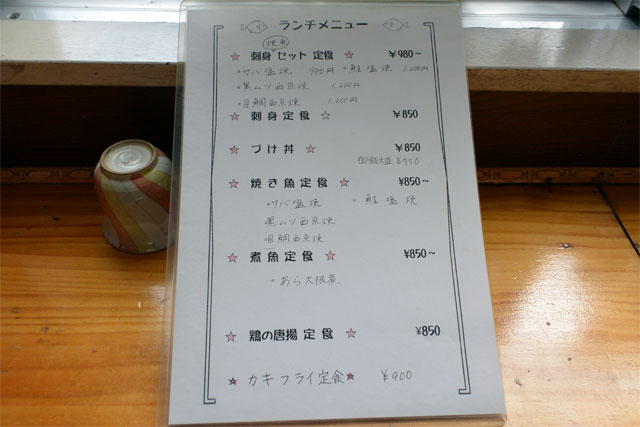 ランチメニュー
焼魚
☆ 刺身セット定食 ☆ ¥980~
・サバ塩焼 980円 ・鮭塩焼 1,200円
・黒ムツ西京焼 1,200円
・目鯛西京焼 1,200円
☆ 刺身定食 ☆ ¥850
☆ づけ丼 ☆ ¥850
御飯大盛 ¥950
☆ 焼き魚定食 ☆ ¥850~
・サバ塩焼 ・鮭塩焼
黒ムツ西京焼
目鯛西京焼
☆ 煮魚定食 ☆ ¥850~
・あら大根煮
☆ 鶏の唐揚定食 ☆ ¥850
☆ カキフライ定食 ☆ ¥900